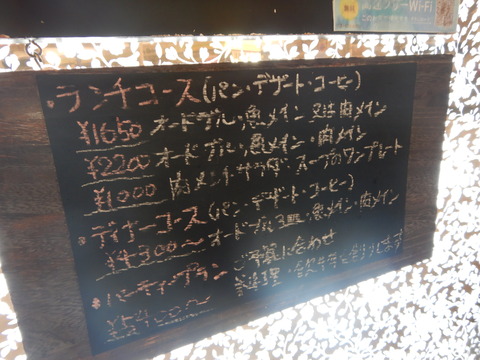 ・ランチコース(パン・デザート・コーヒー)
¥1650 オードブル・魚メイン 又は肉メイン
¥2200 オードブル・魚メイン・肉メイン
¥1000 肉メンチ・サラダ・スープのワンプレート
・ディナーコース(パン・デザート・コーヒー)
¥4300〜 オードブル3皿・魚メイン・肉メイン
・パーティープラン ご予算に合わせ
¥5400〜 お料理・
フリーWi-Fi